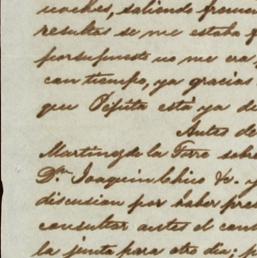 noches, saliendo frecuen
resultas se me estaba f
por supuesto no me era p
con tiempo, ya gracias
que Pepita está ya de
Antes de
Martinez de la Torre sobre
Dn. Joaquin Chico &. y
discusion por haber pres
consultar antes el con
la junta para otro dia; p